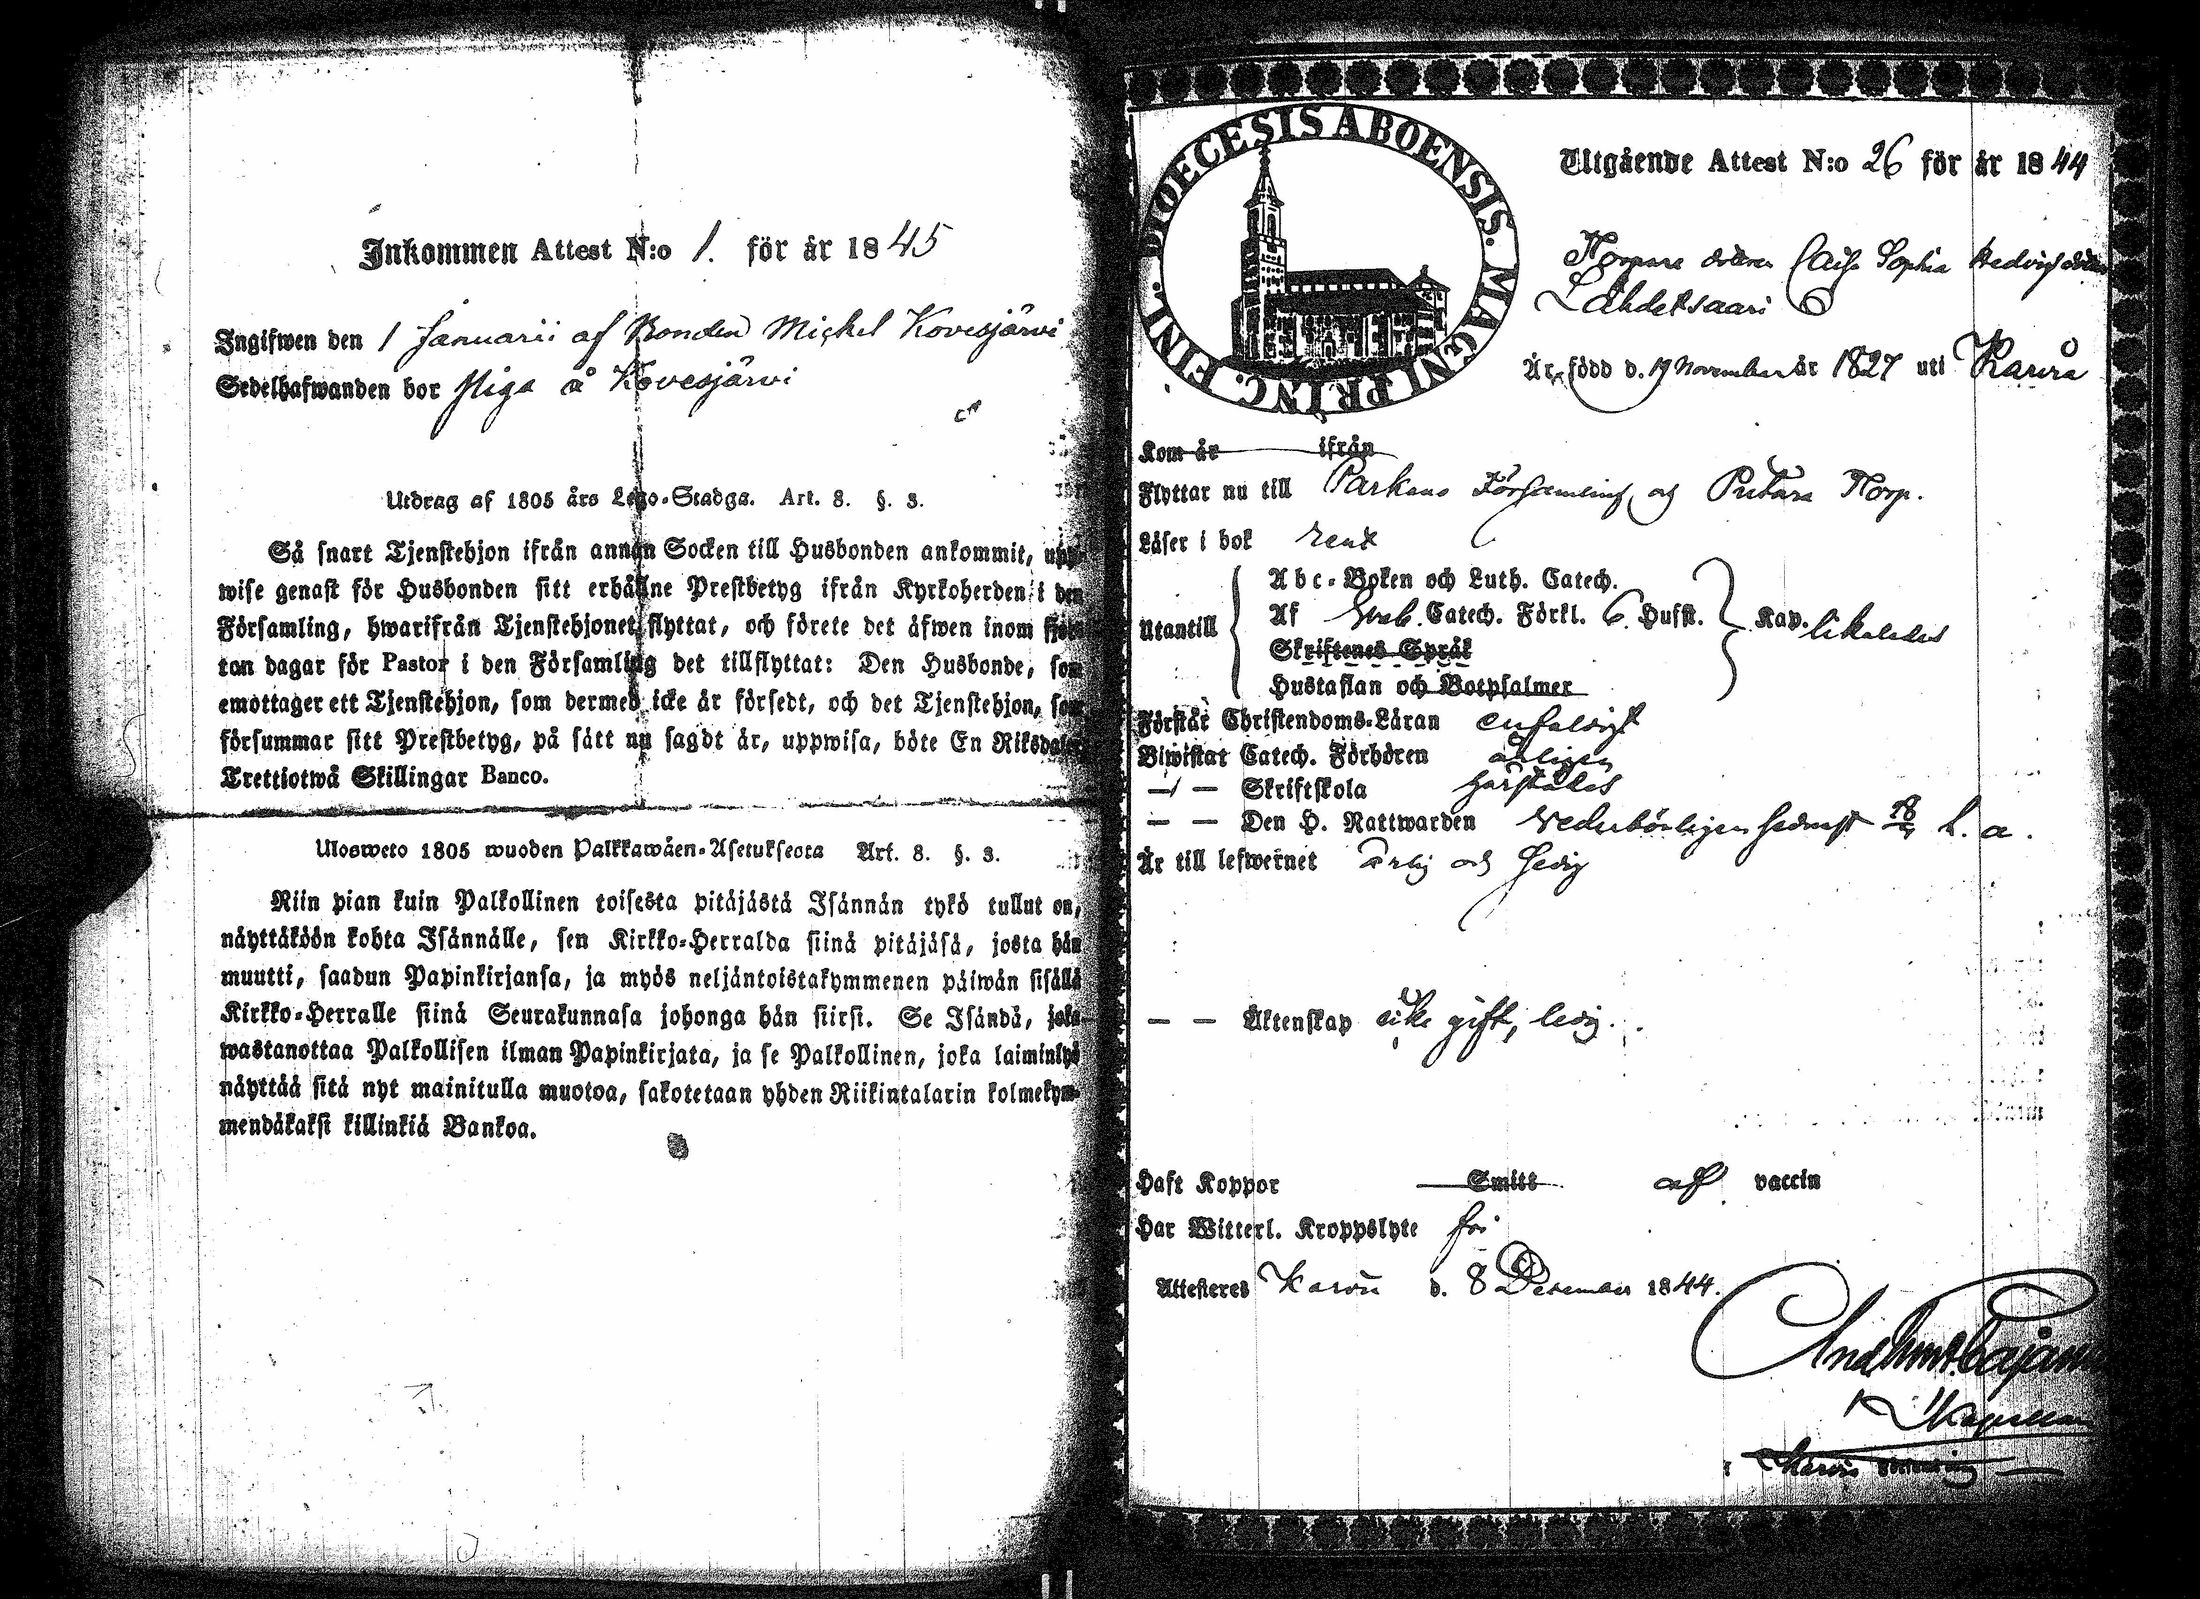 Inkommen Attest N:o 1. för år 1845
Ingifwen den 1 Januarii af Bonden Michel Kovesjärvi
Sedelhafwanden bor Piga å Kovesjärvi
Utdrag af 1805 års Lego-Stadga. Art. 8. §. 3.
Så snart Tjenstehjon ifrån annan Socken till Husbonden ankommit, upp-
wise genast för Husbonden sitt erhållne Prestbetyg ifrån Kyrkoherden i den
Församling, hwarifrån Tjenstehjonet flyttat, och förete det äfwen inom fjor-
ton dagar för Pastor i den Församling det tillflyttat: Den Husbonde, som
emottager ett Tjenstehjon, som dermed icke är försedt, och det Tjenstehjon, som
försummar sitt Prestbetyg, på sätt nu sagdt är, uppwisa, böte En Riksdaler
Trettiotwå Skillingar Banco.
Ulosweto 1805 wuoden Palkkawäen-Asetuksesta Art. 8. §. 3.
Niin pian kuin Palkollinen toisesta pitäjästä Isännän tykö tullut on,
näyttäköön kohta Isännälle, sen Kirkko-Herralda siinä pitäjäsä, josta hän
muutti, saadun Papinkirjansa, ja myös neljäntoistakymmenen päiwän sisällä
Kirkko-Herralle siinä Seurakunnasa johonga hän siirsi. Se Isändä, joka
wastanottaa Palkollisen ilman Papinkirjata, ja se Palkollinen, joka laiminlyö
näyttää sitä nyt mainitulla muotoa, sakotetaan yhden Riikintalarin kolmekym-
mendäkaksi killinkiä Bankoa.
DIOECESIS ABOENSIS. MAGNI PRINC. FINL.
Utgående Attest N:o 26 för år 1844
Torpare dottren Caisa Sophia Hedvig
Lähdeksaari
Är född d. 19 November år 1827 uti Karvia
Kom år ifrån
Flyttar nu till Parkano Församling och Torp.
Läser i bok rent
Utantill
Abc-Boken och Luth. Catech.
Af Sveb. Catech. Förkl. 6. Hufst.
Skriftenes Språk
Hustaflan och Botpsalmer
Kap. likaledes
Förstår Christendoms-Läran enfaldigt
Biwistat Catech. Förhören årligen
— — Skriftskola härstädes
— — Den H. Nattwarden vederbörligen sednast h. a.
Är till lefwernet ärlig och sedig
— — Äktenskap icke gift, ledig.
Haft Koppor Smitt af vaccin
Har Witterl. Kroppslyte fri
Attesteres Karvia d. 8 December 1844.
Cajanus
Kapellan